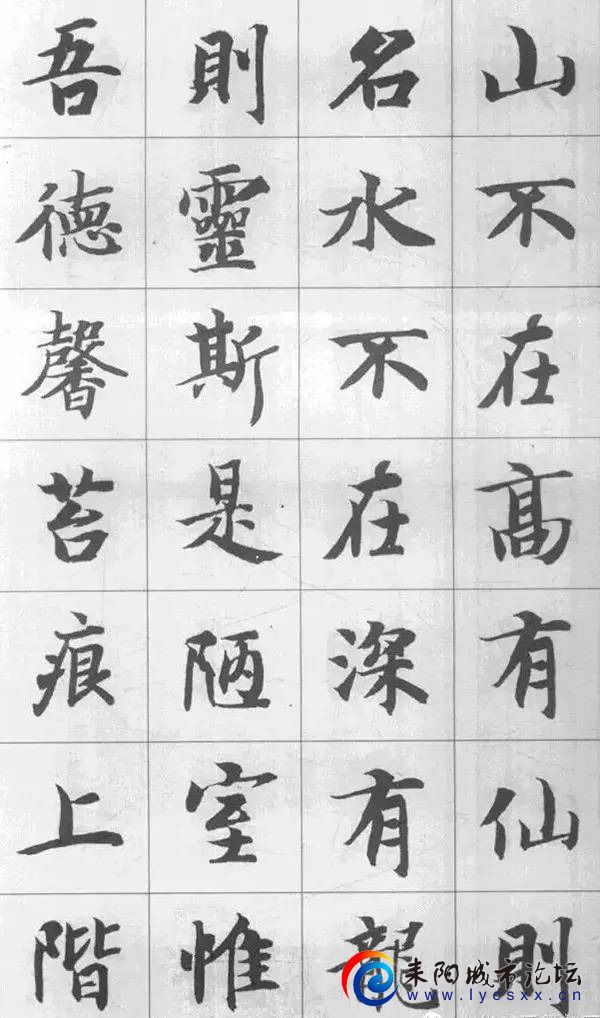 山不在髙有仙則
名水不在深有龍
則靈斯是陋室惟
吾德馨苔痕上階
耒阳城市论坛
www.lycsxx.cn